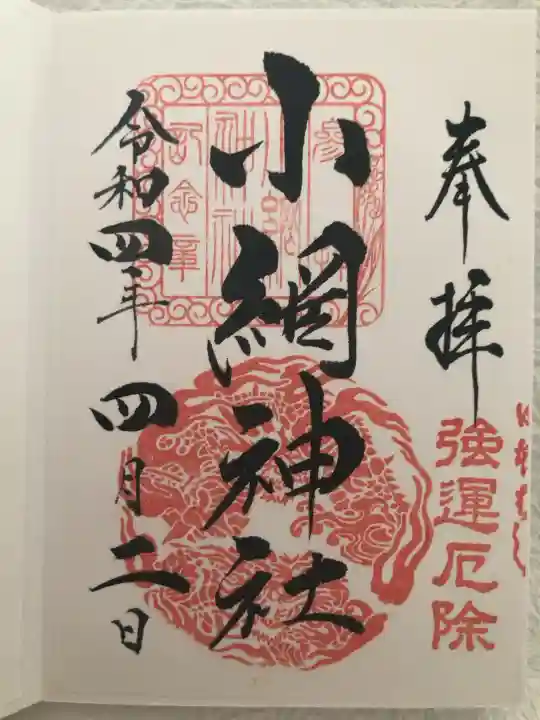 奉拝
強運厄除
小網神社
令和四年四月二日